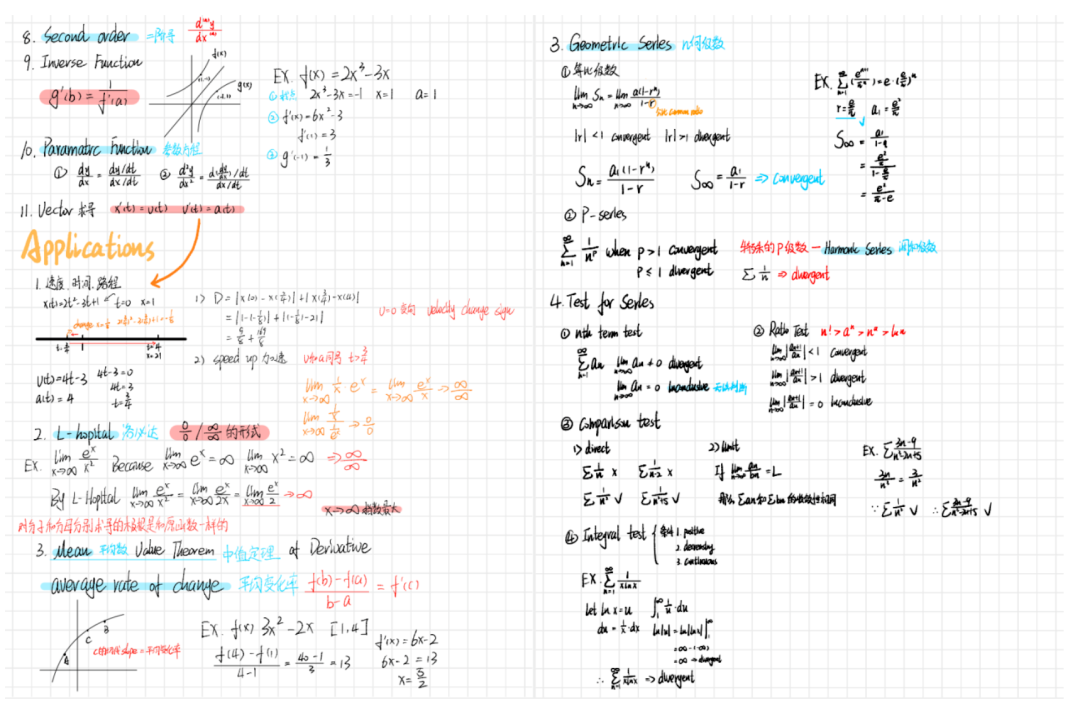 8. Second order =阶导 d⁽ⁿ⁾y/dx⁽ⁿ⁾
9. Inverse Function
g'(b) = 1/f'(a)
f(x)
g(x)
EX. f(x) = 2x³-3x
① 找点 2x³-3x=-1 x=1 a=1
② f'(x)=6x²-3
f'(1)=3
③ g'(-1)=1/3
10. Paramatric Function 参数方程
① dy/dx = dy/dt / dx/dt ② d²y/dx² = d(dy/dx)/dt / dx/dt
11. Vector 求导 x'(t)=v(t) v'(t)=a(t)
Applications
1. 速度. 时间. 路程
x(t)=2t²-3t+1 t=0 x=1
t=4
x=21
v(t)=4t-3 4t-3=0
a(t)=4 4t=3
t=3/4
1) D=|x(0)-x(3/4)|+|x(3/4)-x(4)|
=|1-(-1/8)|+|(-1/8)-21|
=9/8+169/8
v=0 变向 velocity change sign
2) speed up 加速 v和a同号 t>3/4
lim x→∞ 1/x e^x = lim x→∞ e^x/x → ∞/∞
2. L-hopital 洛必达 0/0 / ∞/∞ 的形式
EX. lim x→∞ e^x/x² Because lim x→∞ e^x=∞ lim x→∞ x²=∞ → ∞/∞
By L-Hopital lim x→∞ e^x/x² = lim x→∞ e^x/2x = lim x→∞ e^x/2 → ∞
x→∞ 指数最大
对分子和分母分别求导的极限是和原函数一样的
3. Mean 平均数 Value Theorem 中值定理 of Derivative
average rate of change 平均变化率 f(b)-f(a)/b-a = f'(c)
A
C
B
EX. f(x) 3x²-2x [1,4]
f(4)-f(1)/4-1 = 40-1/3 = 13
f'(x)=6x-2
6x-2=13
x=5/2
3. Geometric Series 几何级数
① 等比级数
lim n→∞ Sn = lim n→∞ a(1-rⁿ)/1-r
|r|<1 convergent |r|>1 divergent
Sn = a₁(1-rⁿ)/1-r S∞ = a₁/1-r ⇒ convergent
r=e/π a₁=e²/π
S∞ = a₁/1-r
= e²/π / 1-e/π
= e²/π-e
② P-series
∞ Σ n=1 1/nᵖ when p>1 convergent
p≤1 divergent
特殊的P级数 — Harmonic Series 调和级数
Σ 1/n ⇒ divergent
4. Test for Series
① nth term test
∞ Σ n=1 an lim n→∞ an≠0 divergent
lim n→∞ an=0 Inconclusive 无法判断
② Ratio Test n!>aⁿ>nᵃ>lnx
lim n→∞ |an+1/an|<1 convergent
lim n→∞ |an+1/an|>1 divergent
lim n→∞ |an+1/an|=0 Inconclusive
③ Comparison test
1) direct 2) limit
Σ 1/n x Σ 1/n-2 x
Σ 1/n² √ Σ 1/n²+5 √
If lim n→∞ an/bn=L
那么Σan和Σbn的收敛性相同
EX. Σ 3n-9/n³-2n+5
3n/n³ = 3/n²
∵ Σ 1/n² √ ∴ Σ 3n-9/n³-2n+5 √
④ Integral test 条件 1. positive
2. decreasing
3. continuous
EX. ∞ Σ n=1 1/xlnx
let lnx=u ∫ 1/u·du
du=1/x·dx ln|u|=ln|lnx|
=∞-(-∞)
=∞ → divergent
∴ ∞ Σ n=1 1/xlnx ⇒ divergent